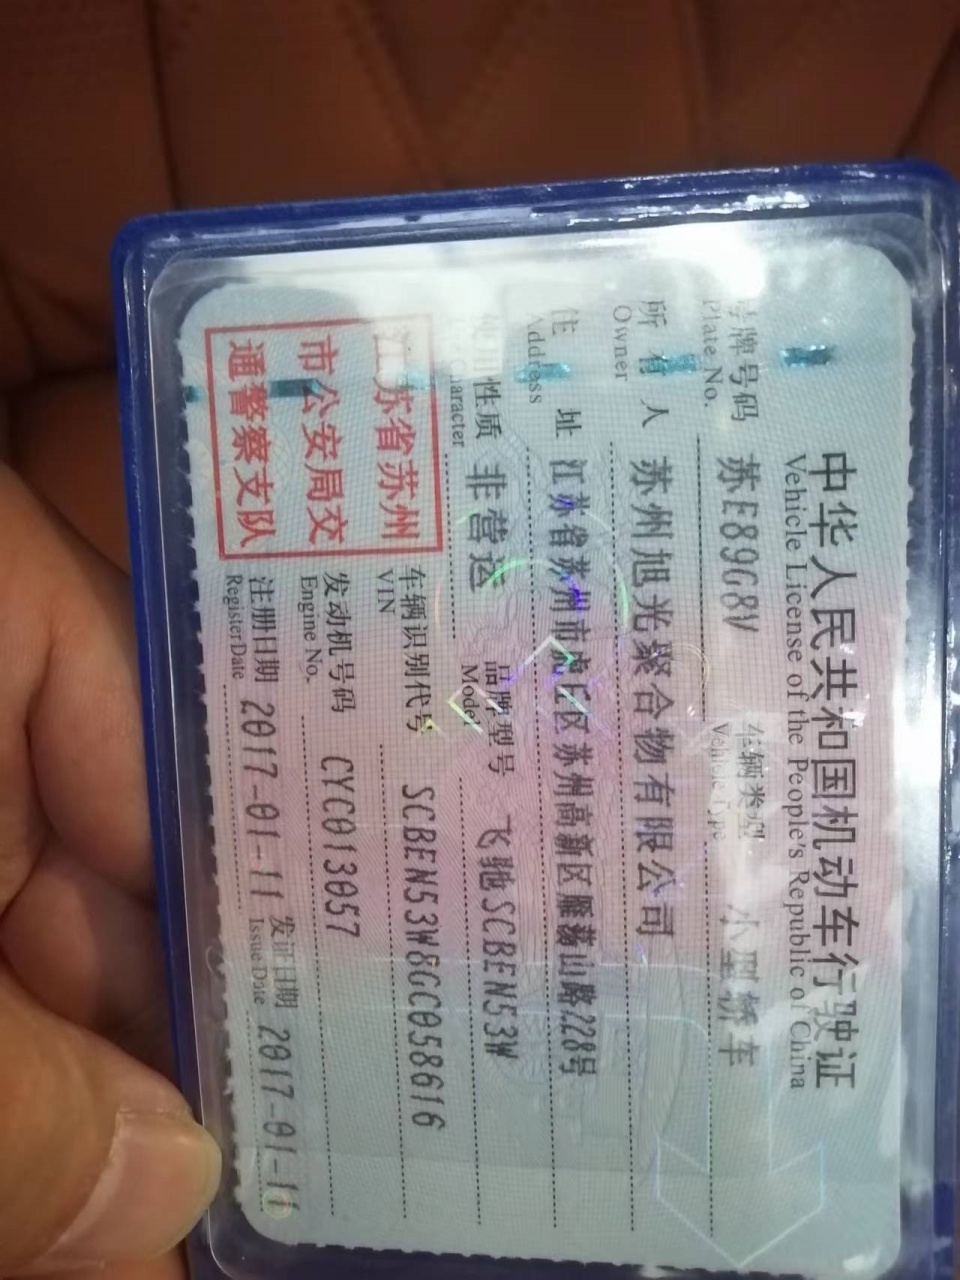 中华人民共和国机动车行驶证
Vehicle License of the People's Republic of China
号牌号码 苏E89G8V 车辆类型 小型轿车
Plate No. Vehicle Type
所有人 苏州旭光聚合物有限公司
Owner
住址 江苏省苏州市虎丘区苏州高新区雁荡山路228号
Address
使用性质 非营运 品牌型号 飞驰SCBEN53W
Character Model
江苏省苏州
市公安局交
通警察支队
车辆识别代号 SCBEN53W8GC058616
VIN
发动机号码 CYC013057
Engine No.
注册日期 2017-01-11 发证日期 2017-01-11
Register Date Issue Date